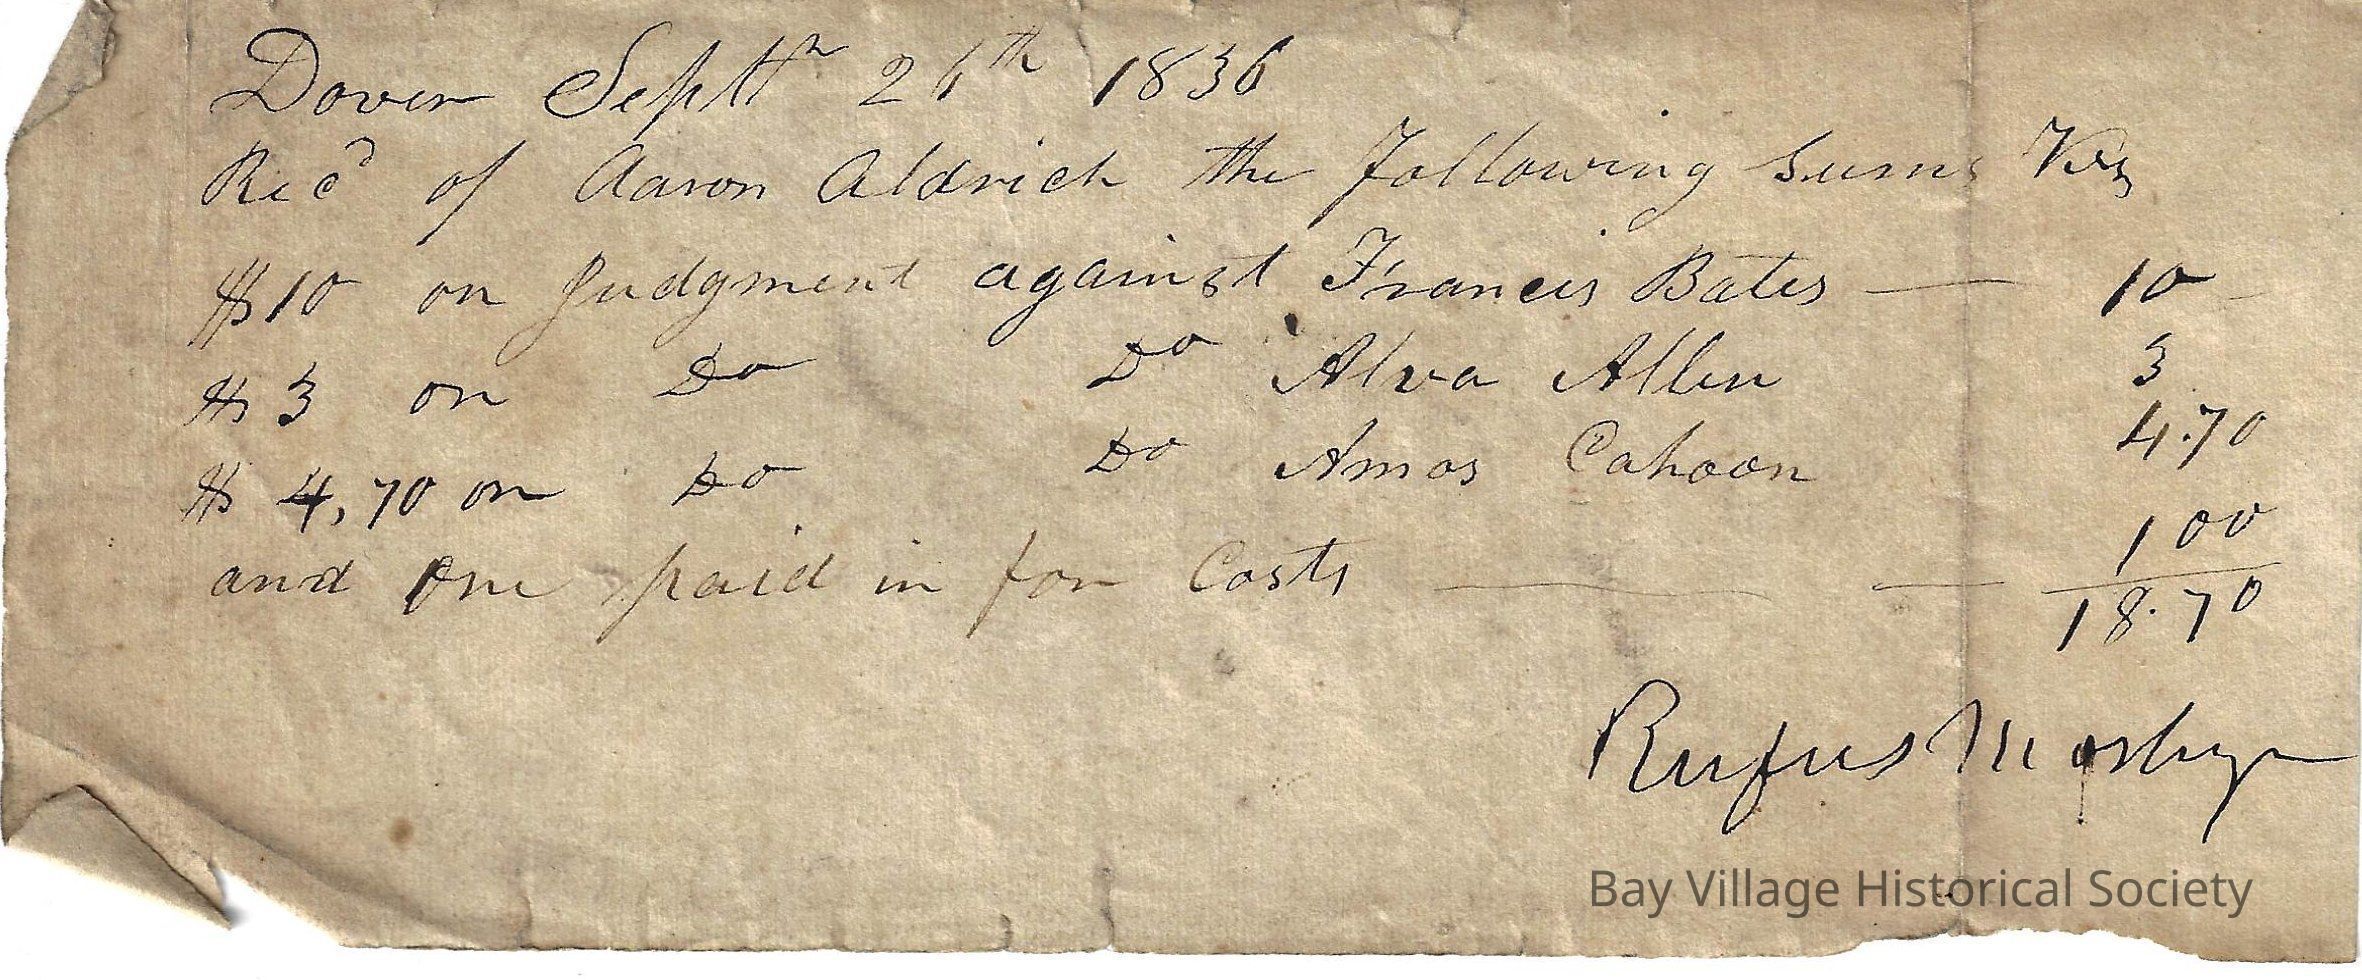 Dover Septr 26th 1836
Recd of Aaron Aldrich the following sums Viz
$10 on Judgment against Francis Bates — 10
$3 on Do Do Alva Allen 3
$4,70 on Do Do Amos Cahoon 4.70
1 00
and One paid in for Costs — —
18.70
Rufus
Bay Village Historical Society